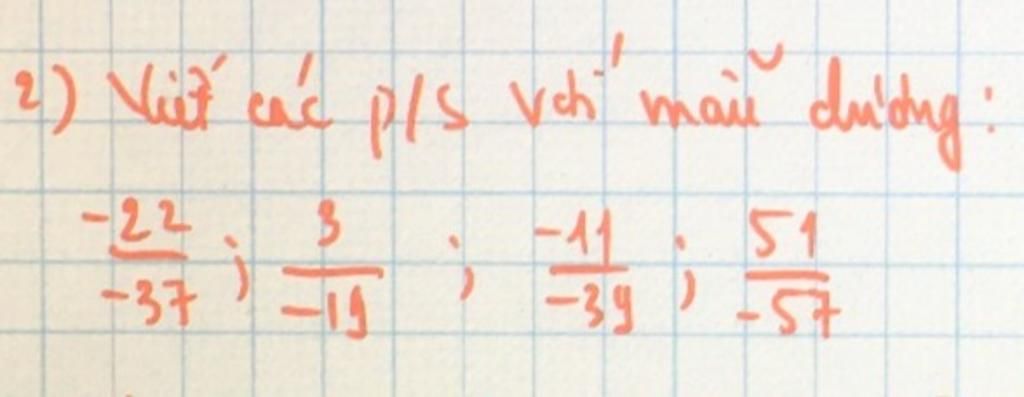 2) Viết các p/s với mẫu dương:
-22/-37 ; 3/-19 ; -11/-39 ; 51/-57